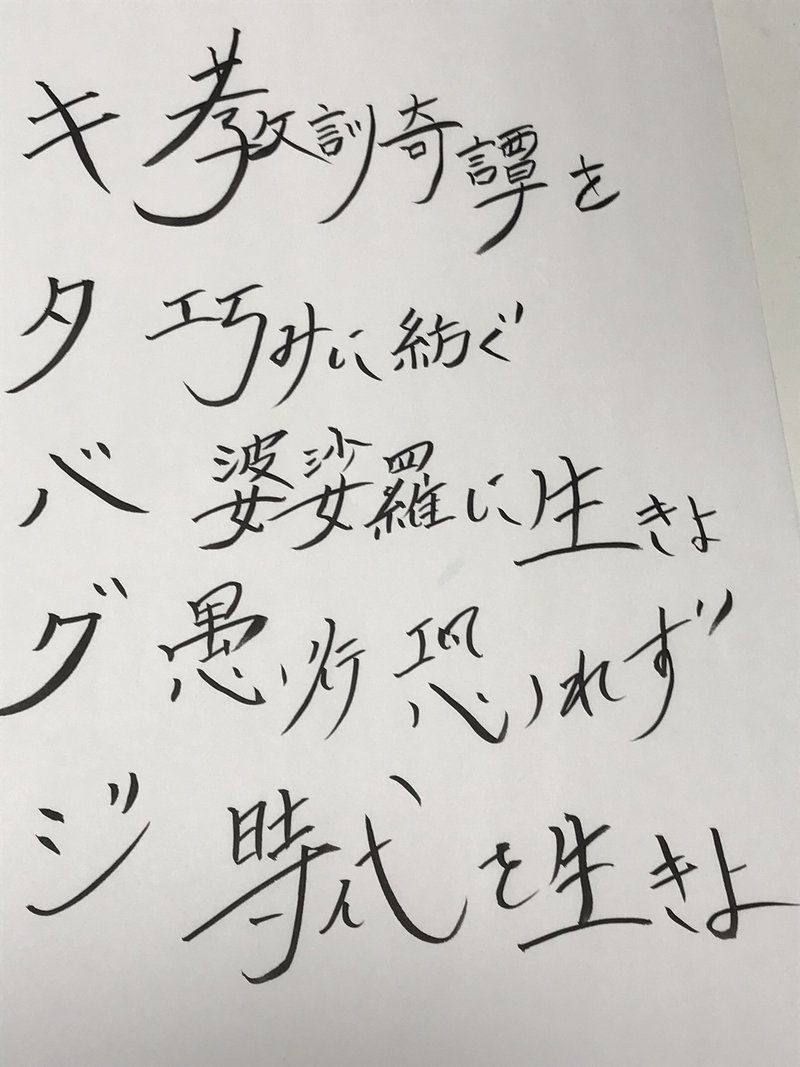 キ 教訓奇譚を
タ 巧みに紡ぐ
バ 婆娑羅に生きよ
グ 愚行恐れず
ジ 時代を生きよ